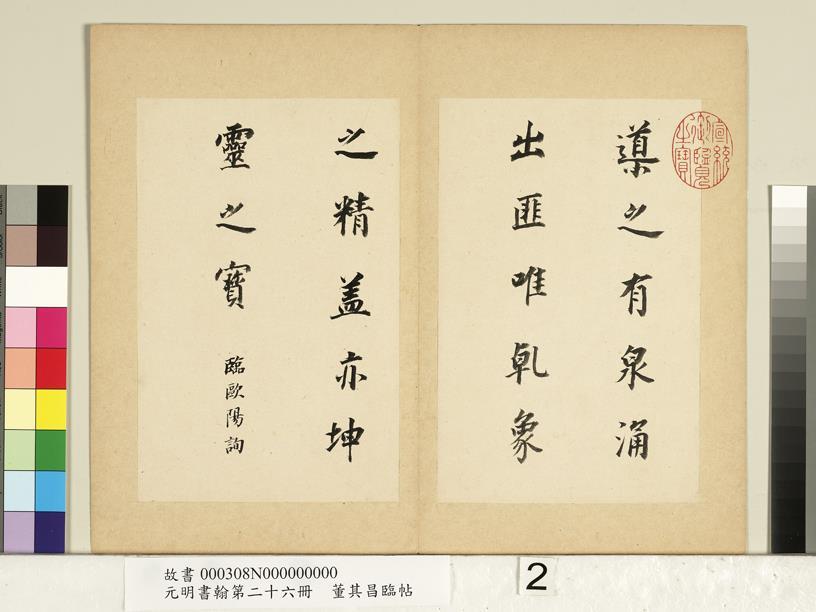 導之有泉涌
出匪唯乹象
之精盖亦坤
靈之寶
臨歐陽詢
宣統御覽之寶
故書 000308N000000000
元明書翰第二十六冊 董其昌臨帖
2